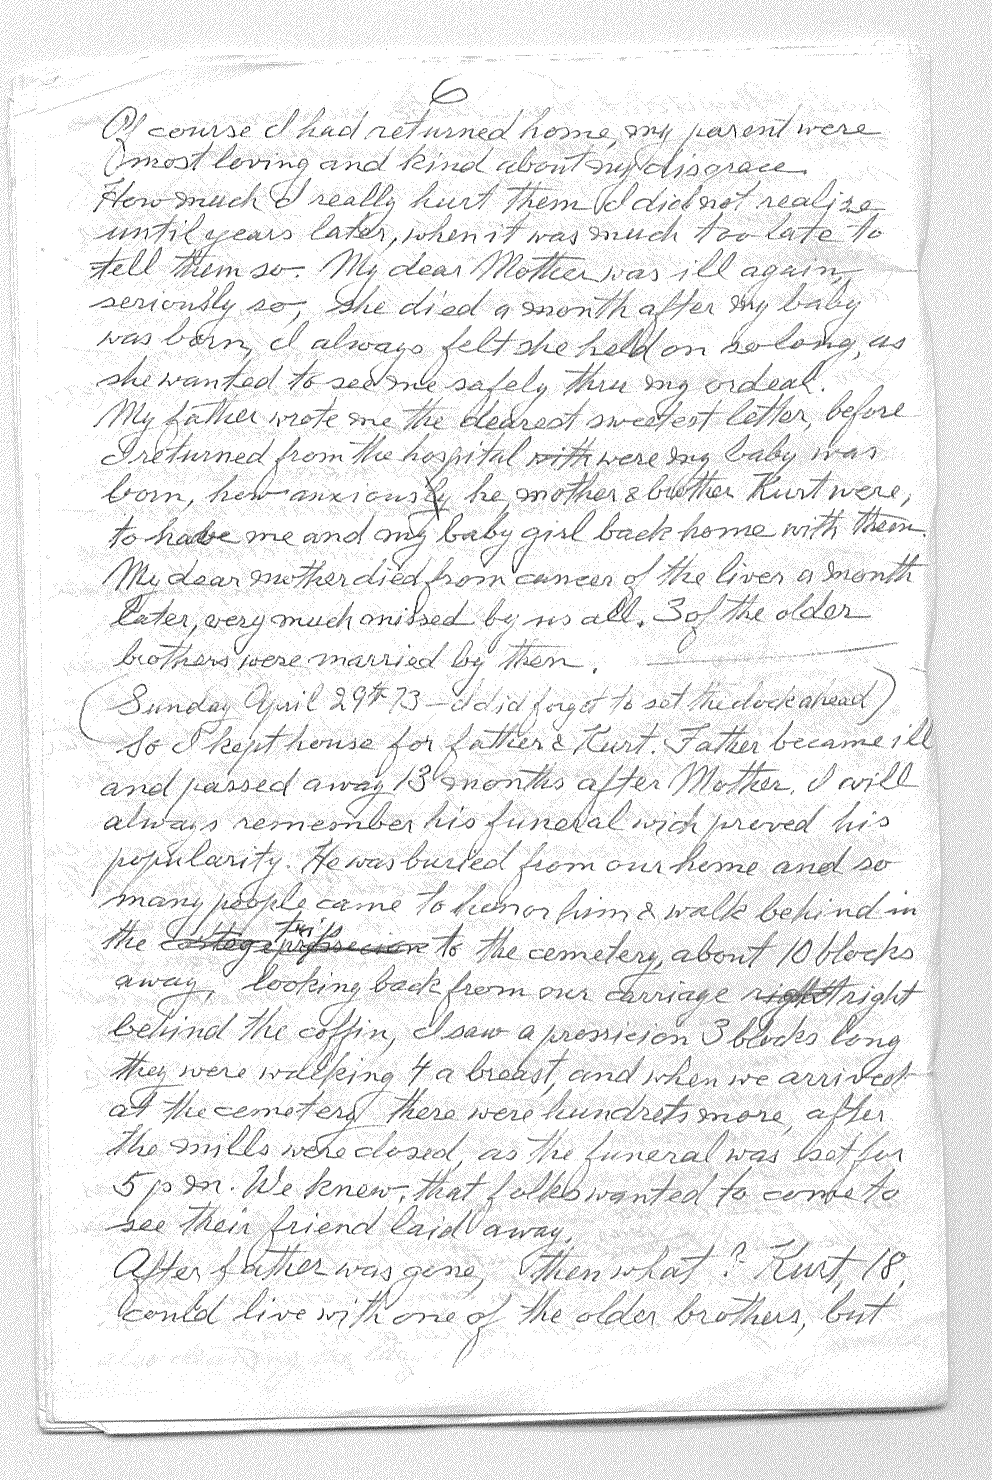 6
Of course I had returned home, my parent were
most loving and kind about my disgrace.
How much I really hurt them I did not realize
until years later, when it was much too late to
tell them so. My dear Mother was ill again,
seriously so, she died a month after my baby
was born, I always felt she held on so long, as
she wanted to see me safely thru my ordeal.
My father wrote me the dearest sweetest letter, before
I returned from the hospital with were my baby was
born, how anxiously he, mother & brother Kurt were,
to have me and my baby girl back home with them.
My dear mother died from cancer of the liver a month
later, very much missed by us all. 3 of the older
brothers were married by then.
(Sunday April 29th 73 - I did forget to set the clock ahead)
So I kept house for father & Kurt. Father became ill
and passed away 13 months after Mother. I will
always remember his funeral wich proved his
popularity. He was buried from our home and so
many people came to honor him & walk behind in
the trip to the cemetery, about 10 blocks
away, looking back from our carriage right right
behind the coffin, I saw a prossicion 3 blocks long
they were walking 4 a breast, and when we arrived
at the cemetery there were hundrets more, after
the mills were closed, as the funeral was set for
5 p.m. We knew, that folks wanted to come to
see their friend laid away.
After father was gone, then what? Kurt, 18,
could live with one of the older brothers, but